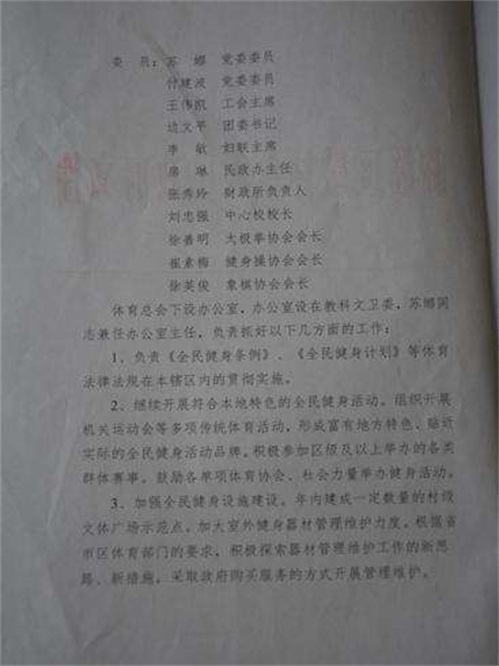 委 员：苏 娜 党委委员
付建波 党委委员
王伟凯 工会主席
边文平 团委书记
李 敏 妇联主席
席 琳 民政办主任
张秀玲 财政所负责人
刘忠强 中心校校长
徐善明 太极拳协会会长
崔素梅 健身操协会会长
徐英俊 象棋协会会长
体育总会下设办公室，办公室设在教科文卫委，苏娜同
志兼任办公室主任，负责抓好以下几方面的工作：
1、负责《全民健身条例》、《全民健身计划》等体育
法律法规在本辖区内的贯彻实施。
2、继续开展符合本地特色的全民健身活动。组织开展
机关运动会等多项传统体育活动，形成富有地方特色、贴近
实际的全民健身活动品牌。积极参加区级及以上举办的各类
群体赛事。鼓励各单项体育协会、社会力量举办健身活动。
3、加强全民健身设施建设。年内建成一定数量的村级
文体广场示范点。加大室外健身器材管理维护力度。根据省
市区体育部门的要求，积极探索器材管理维护工作的新思
路、新措施，采取政府购买服务的方式开展管理维护。